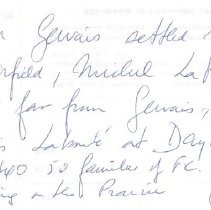 Gervais settled
rfield, Michel La
far from Gervais,
Labonté at Day
40 50 families of FC.
ing on the Prairie